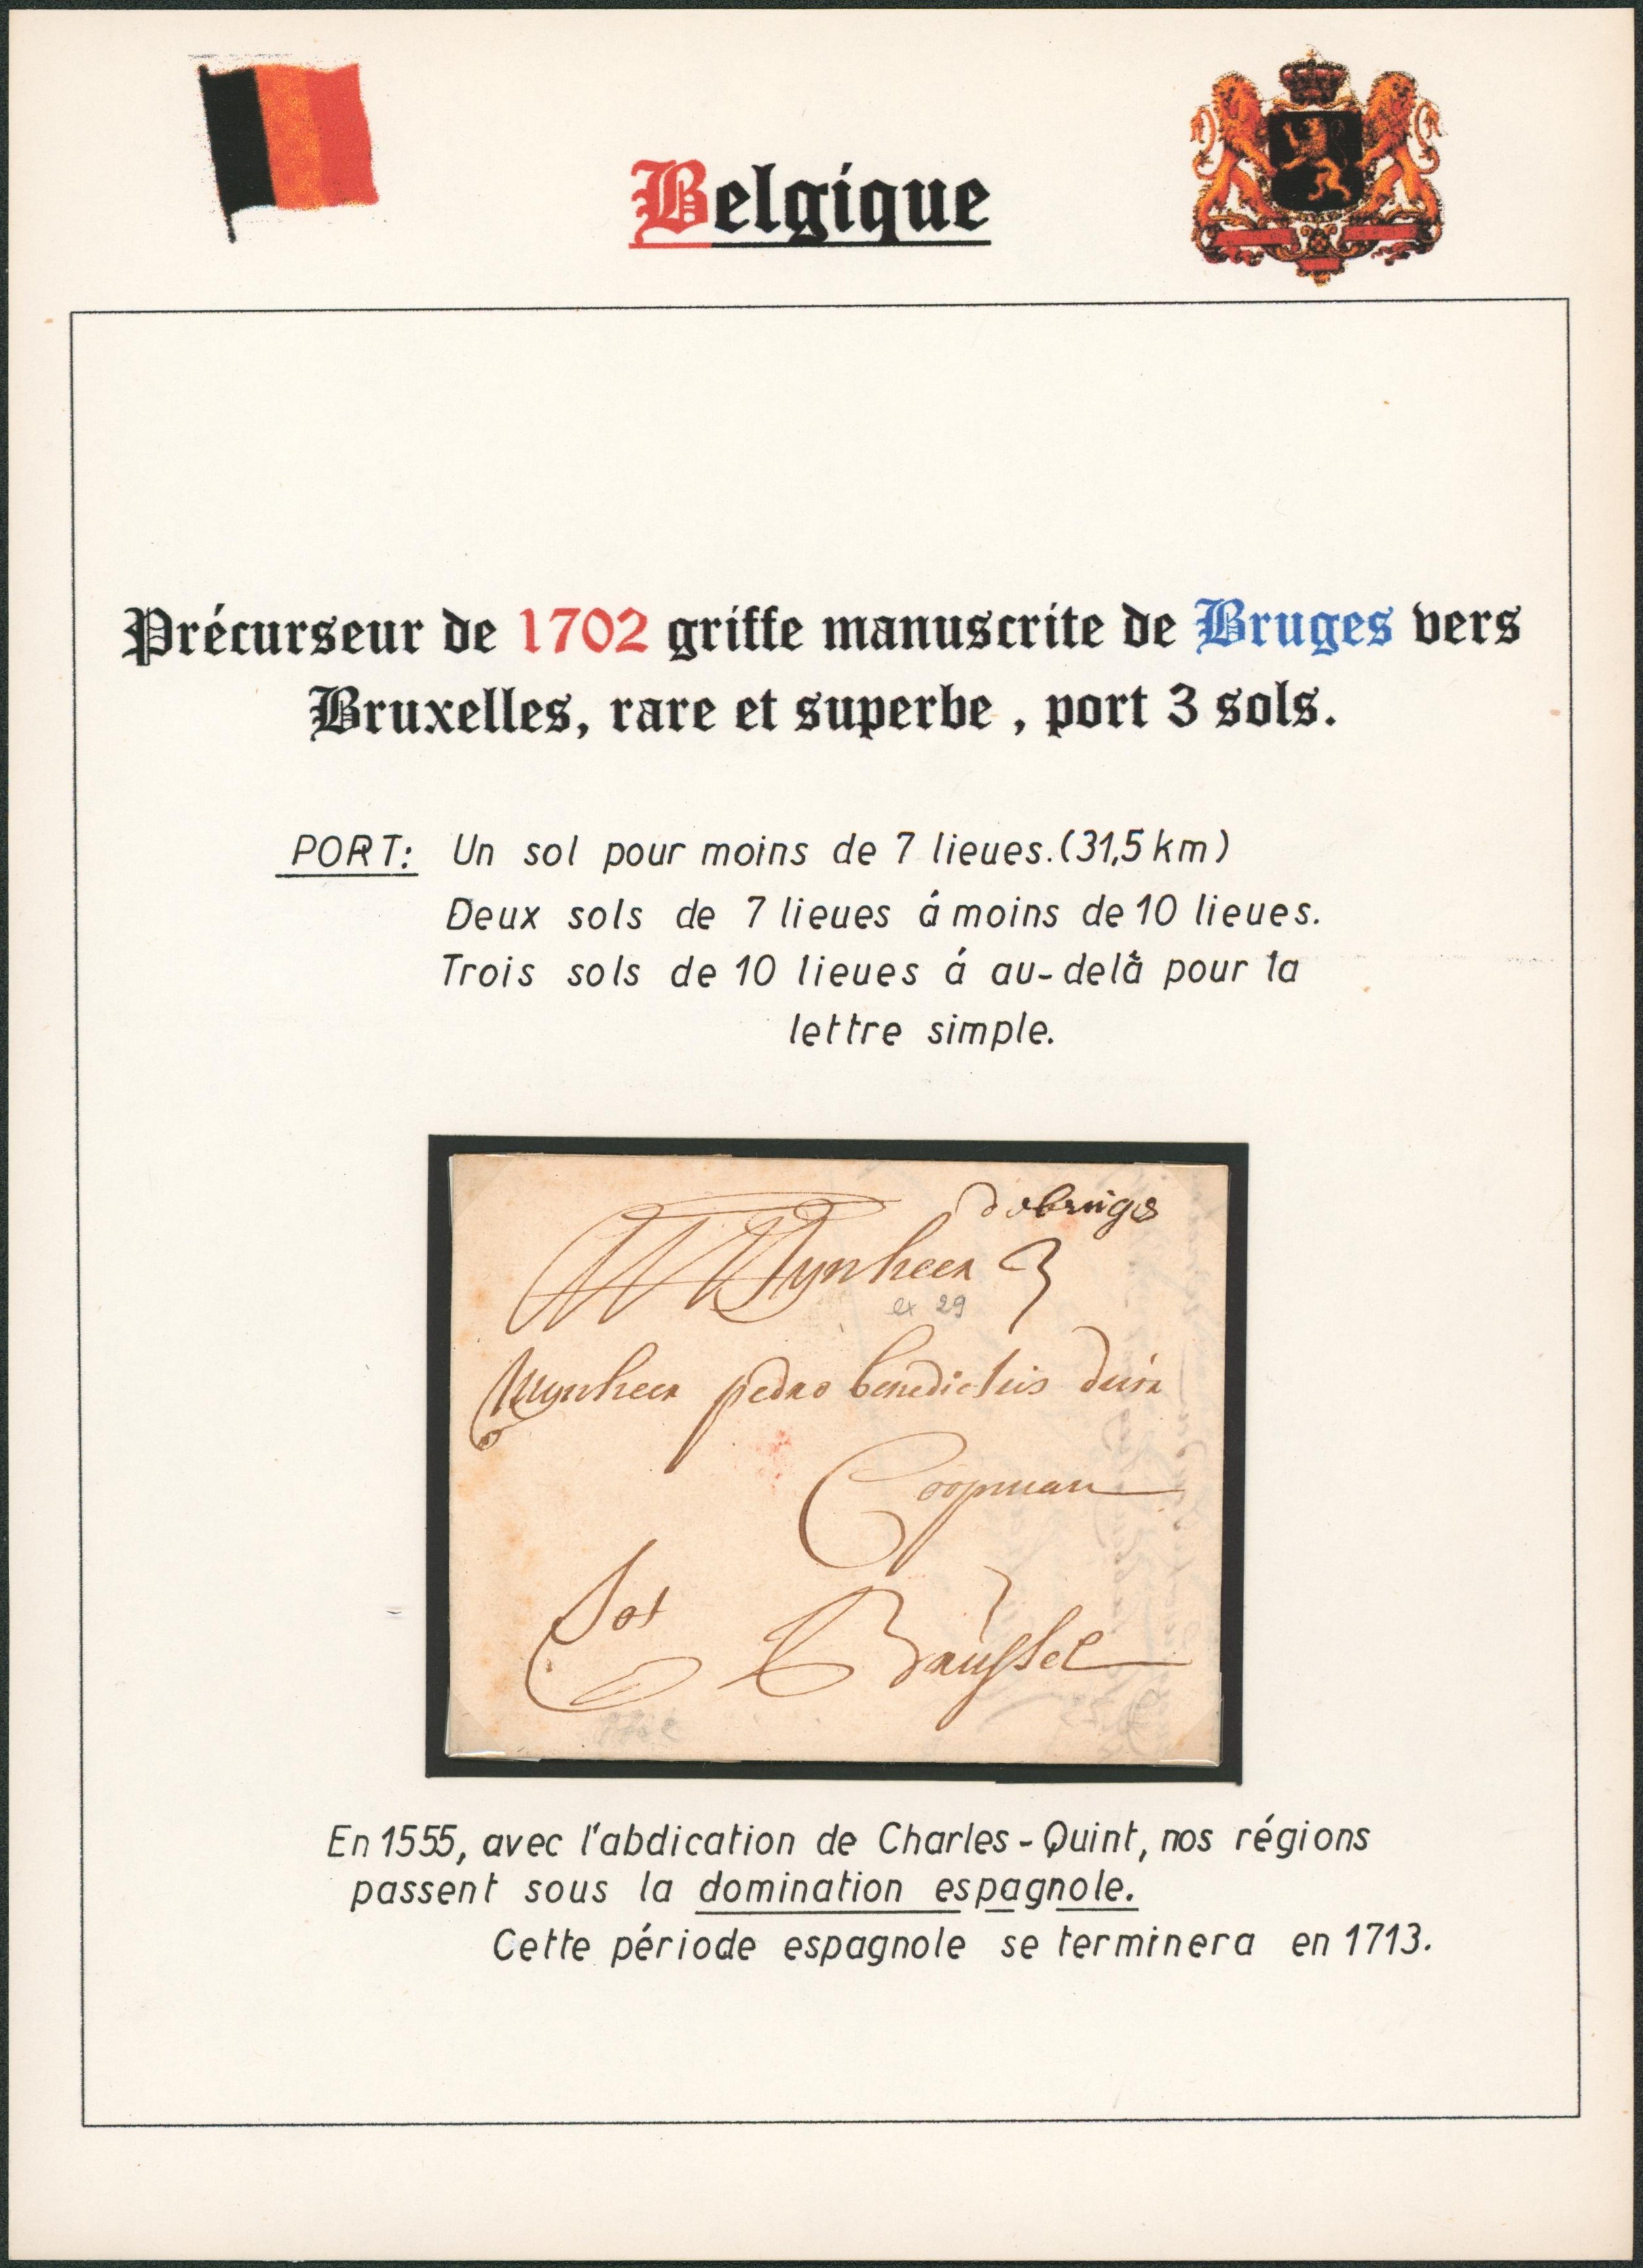 Belgique
Précurseur de 1702 griffe manuscrite de Bruges vers
Bruxelles, rare et superbe , port 3 sols.
PORT: Un sol pour moins de 7 lieues.(31,5 km)
Deux sols de 7 lieues á moins de 10 lieues.
Trois sols de 10 lieues á au-delà pour la
lettre simple.
debruges
Mynheer 3
ex 29
Mynheer pedro benedictus
Coopman
Tot Brussel
En 1555, avec l'abdication de Charles-Quint, nos régions
passent sous la domination espagnole.
Cette période espagnole se terminera en 1713.